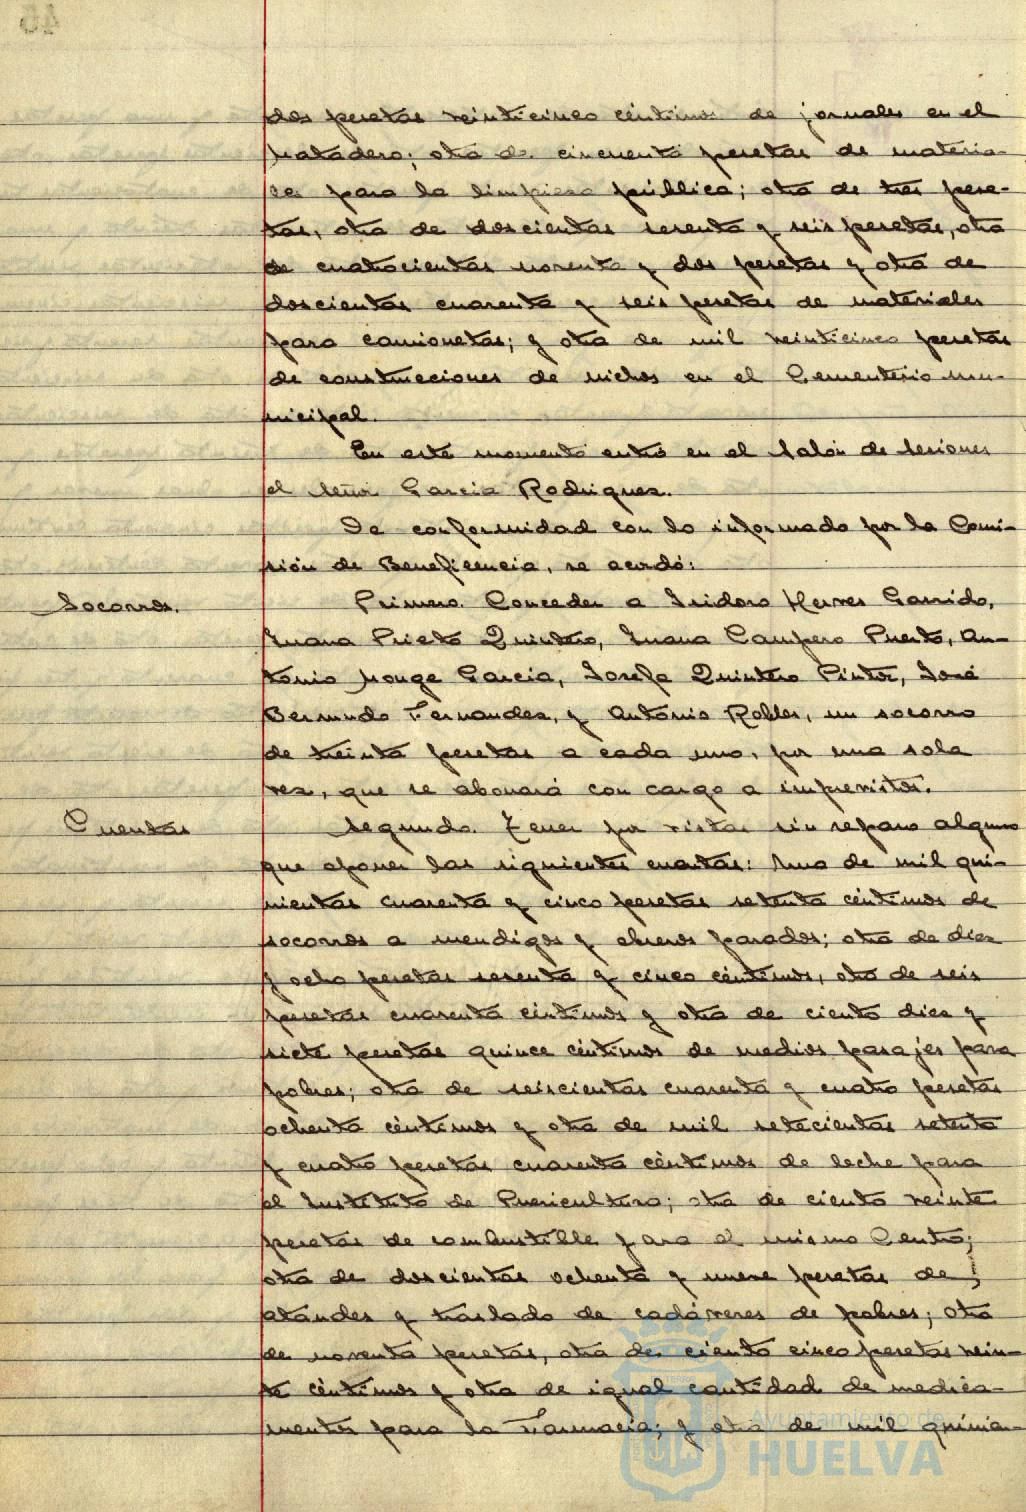 dos pesetas veinticinco céntimos de jornales en el
Matadero; otra de cincuenta pesetas de materia-
les para la limpieza pública; otra de tres pese-
tas, otra de doscientas sesenta y seis pesetas, otra
de cuatrocientas noventa y dos pesetas y otra de
doscientas cuarenta y seis pesetas de materiales
para camionetas; y otra de mil veinticinco pesetas
de construcciones de nichos en el Cementerio mu-
nicipal.
En este momento entró en el Salón de Sesiones
el Señor García Rodríguez.
De conformidad con lo informado por la Comi-
sión de Beneficencia, se acordó:
Socorros.
Primero. Conceder a Isidoro Herves Garrido,
Juana Prieto Quintero, Juana Campero Puerto, An-
tonio Monge García, Josefa Quintero Pintor, José
Bermudo Fernandez, y Antonio Robles, un socorro
de treinta pesetas a cada uno, por una sola
vez, que se abonará con cargo a imprevistos.
Cuentas
Segundo. Tener por vistas sin reparo alguno
que oponer las siguientes cuentas: Una de mil qui-
nientas cuarenta y cinco pesetas setenta céntimos de
socorros a mendigos y obreros parados; otra de diez
y ocho pesetas sesenta y cinco céntimos, otra de seis
pesetas cuarenta céntimos y otra de ciento diez y
siete pesetas quince céntimos de medios pasajes para
pobres; otra de seiscientas cuarenta y cuatro pesetas
ochenta céntimos y otra de mil setecientas setenta
y cuatro pesetas cuarenta céntimos de leche para
el Instituto de Puericultura; otra de ciento veinte
pesetas de combustible para el mismo Centro;
otra de doscientas ochenta y nueve pesetas de
ataudes y traslado de cadáveres de pobres; otra
de noventa pesetas, otra de ciento cinco pesetas vein-
te céntimos y otra de igual cantidad de medica-
mentos para la Farmacia; y otra de mil quinien-
Ayuntamiento de
HUELVA